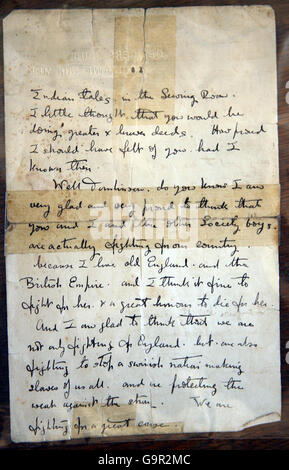 Indian tales, in the Sewing Room.
I little thought that you would be
doing greater & braver deeds. How proud
I should have felt of you. had I
known then.
Well Tomlinson. do you know I am
very glad and very proud to think that
you and I and ten other Society boys.
are actually fighting for our country.
because I love old England. and the
British Empire. and I think it fine to
fight for her. & a great honour to die for her.
And I am glad to think that we are
not only fighting for England. but are also
fighting to stop a swinish nation making
slaves of us all. and are protecting the
weak against the strong. We are
fighting for a great cause.
alamy
G9R2MC